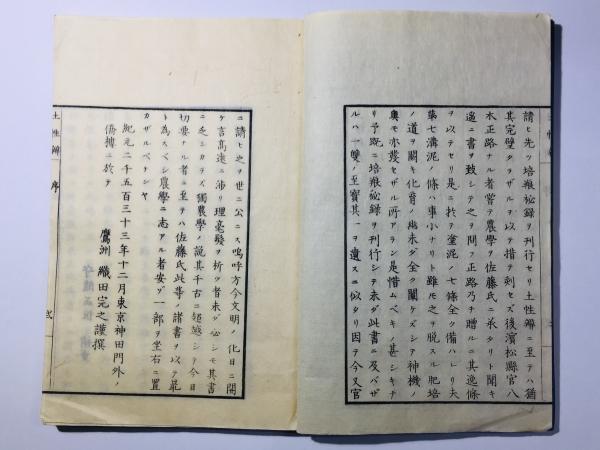 請ヒ先ツ培糓秘録ヲ刊行セリ土性辨ニ至テハ猶
其完璧タラザルヲ以テ措テ刻セズ後濱松縣官八
木正路ナル者嘗テ農學ヲ佐藤氏ニ承タリト聞キ
遙ニ書ヲ致シテ之ヲ問フ正路乃チ贈ルニ其逸條
ヲ以テセリ是ニ於テ塗泥ノ七條全ク備ハレリ夫
第七溝泥ノ條ハ事小ナリト雖モ之ヲ脱スル肥培
ノ道ヲ闕キ化育ノ
奥モ亦發セザル所アラン是惜ムベキノ甚シキナ
リ予既ニ培糓秘録ヲ刊行シテ未ダ此書ニ及バザ
ルハ一雙ノ至寶其一ヲ遺スニ似タリ因テ今又官
ニ請ヒ之ヲ世ニ公ニス嗚呼方今文明ノ化日ニ開
ケ言高遠ニ沛リ理毫髪ヲ析ツ者未ダ必シモ其書
ニ乏シカラズ獨農學ノ説其千古ニ超越シテ今日
切要ナル者ニ至テハ佐藤氏此等ノ諸書ヲ以テ最
ト為スベシ農學ニ志アル者安ゾ一部ヲ坐右ニ置
カザルベケンヤ
紀元二千五百三十三年十二月東京神田門外ノ
僑椽ニ於テ
鷹洲 織田完之謹撰
土性辨 序